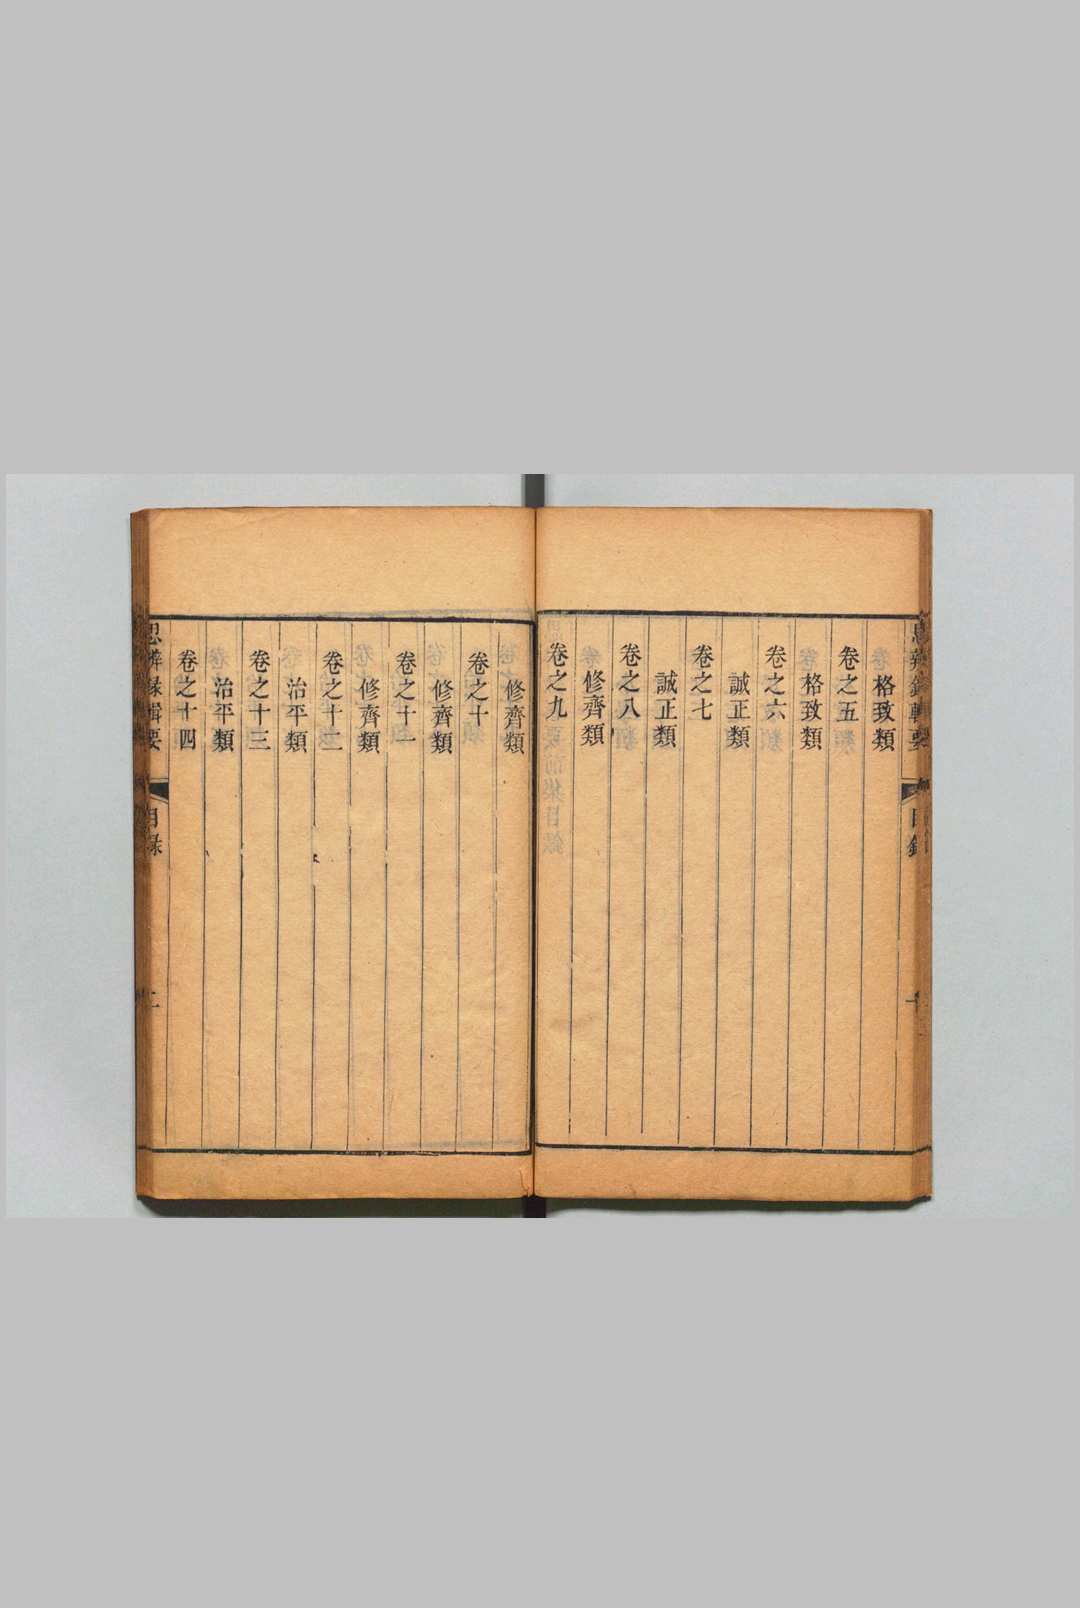 格致類
卷之五
格致類
卷之六
誠正類
卷之七
誠正類
卷之八
修齊類
卷之九
修齊類
卷之十
修齊類
卷之十一
修齊類
卷之十二
治平類
卷之十三
治平類
卷之十四
思辨録輯要
目録
二